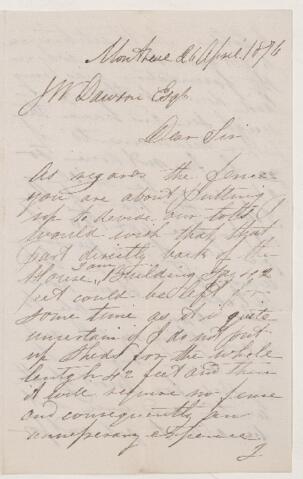 Montreal 26 April 1876
J W Dawson Esq
Dear Sir
As regards the fence
you are about putting
up to devide our lots I
would wish that that
part directly back of the
House I am Building say 42
feet could be left for
some time as it is quite
uncertain if I do not put
up sheds for the whole
length 42 feet and then
it will require no fence
and consequently an
unnessesary expence
I